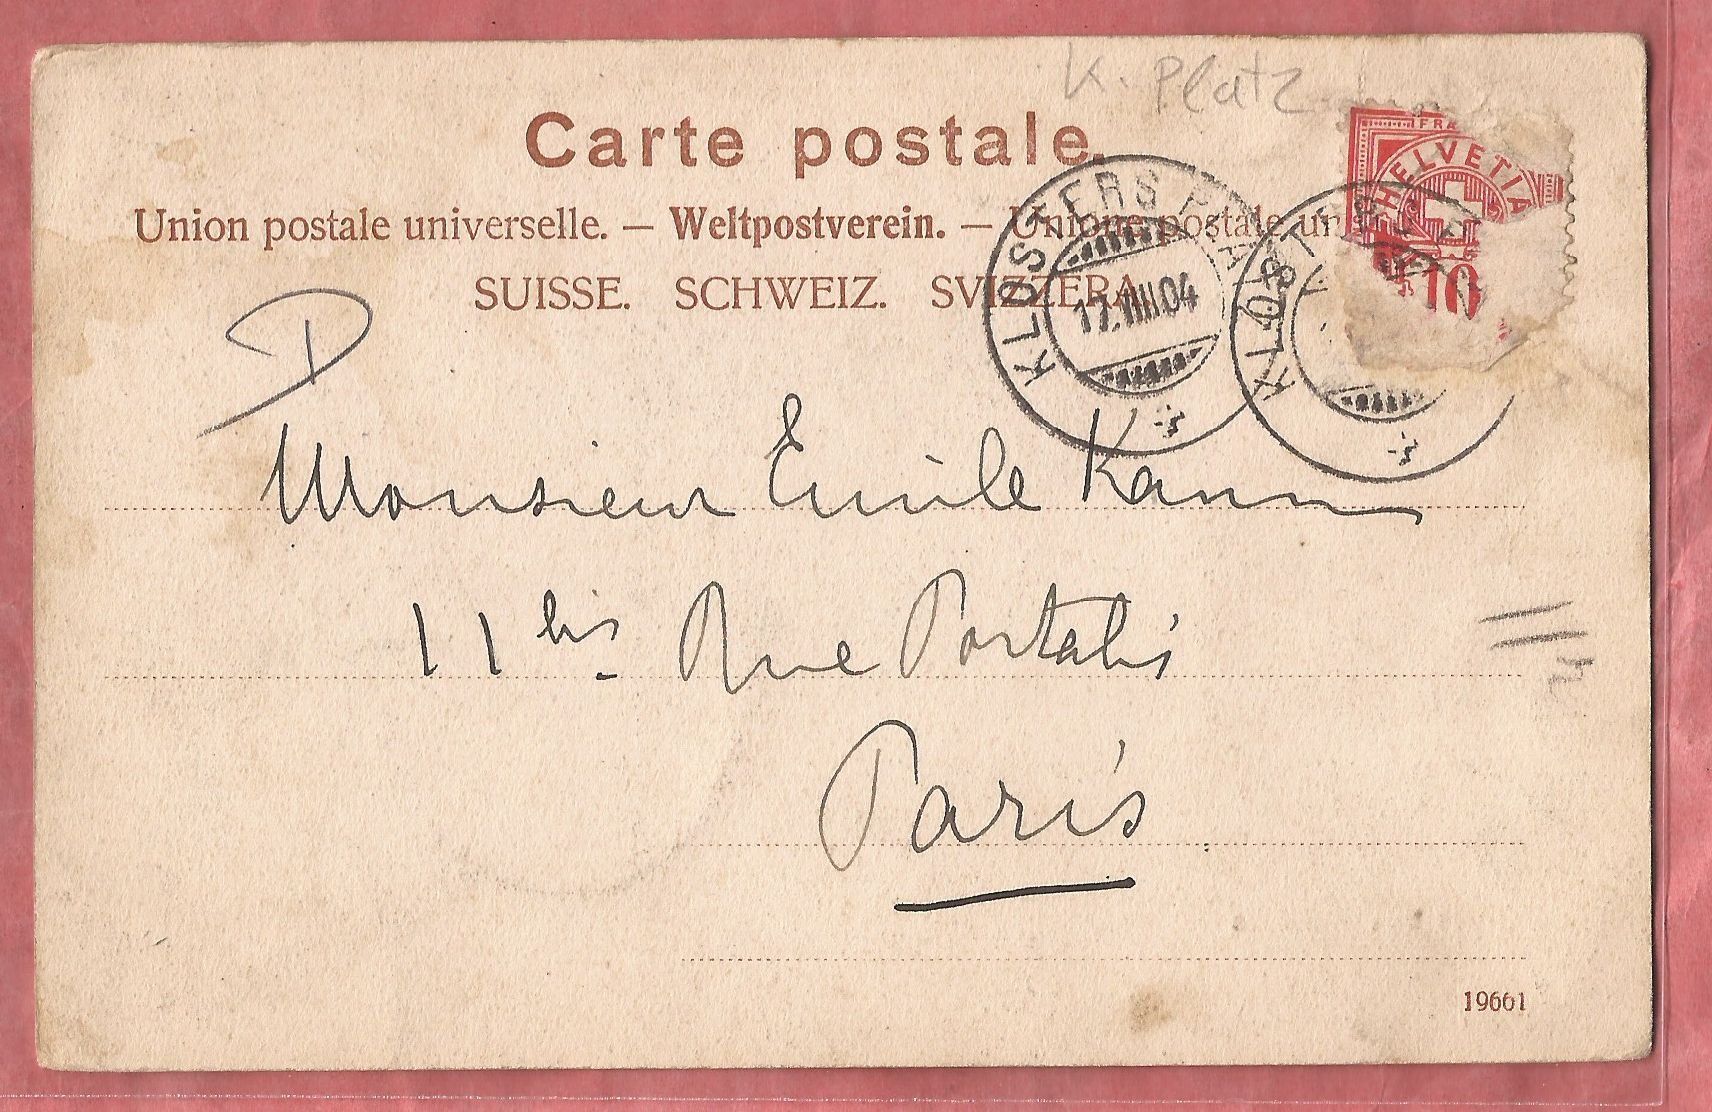 K. Platz
Carte postale.
Union postale universelle. — Weltpostverein. — Unione postale uni
SUISSE. SCHWEIZ. SVIZZERA.
FRA
HELVETIA
10
KLOSTERS PLA
17.VIII.04
KLOST
Monsieur Emile Kann
11 bis Rue Portalis
Paris
19661